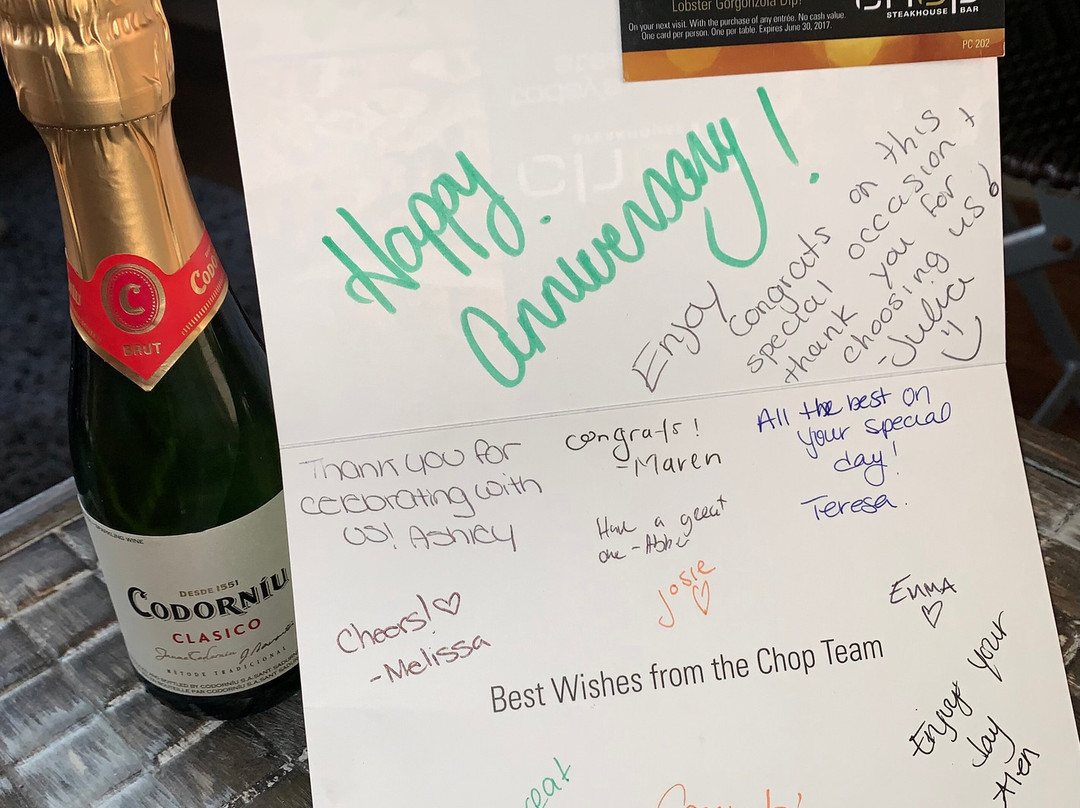 Lobster Gorgonzola Dip!
On your next visit. With the purchase of any entrée. No cash value.
One card per person. One per table. Expires June 30, 2017.
STEAKHOUSE BAR
PC 202
Happy
Anniversary!
Enjoy
Congrats on this
special occasion +
thank you for
choosing us!
-Julica
Thank you for
celebrating with
us! Ashley
congrats!
-Maren
All the best on
your special
day!
Teresa.
Have a great
one -
Josie
Cheers!
-Melissa
Emma
Best Wishes from the Chop Team
Enjoy your
day
C
CODOR
BRUT
SPARKLING WINE
DESDE 1551
CODORNÍU
CLASICO
METODE TRADICIONAL